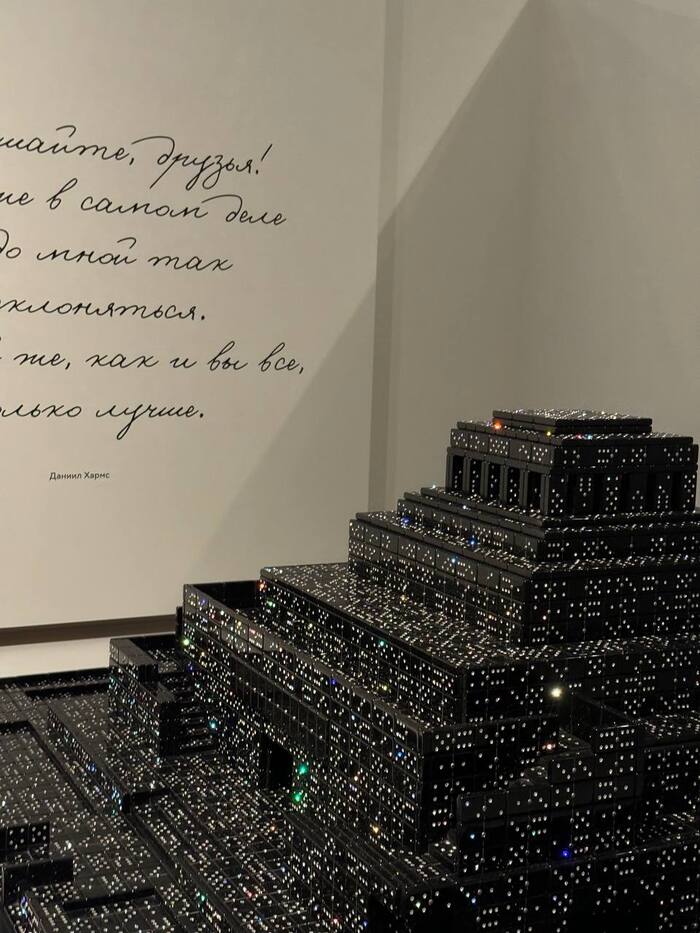 шайте, друзья!
же в самом деле
до мной так
клоняться.
же, как и вы все,
олько лучше.
Даниил Хармс